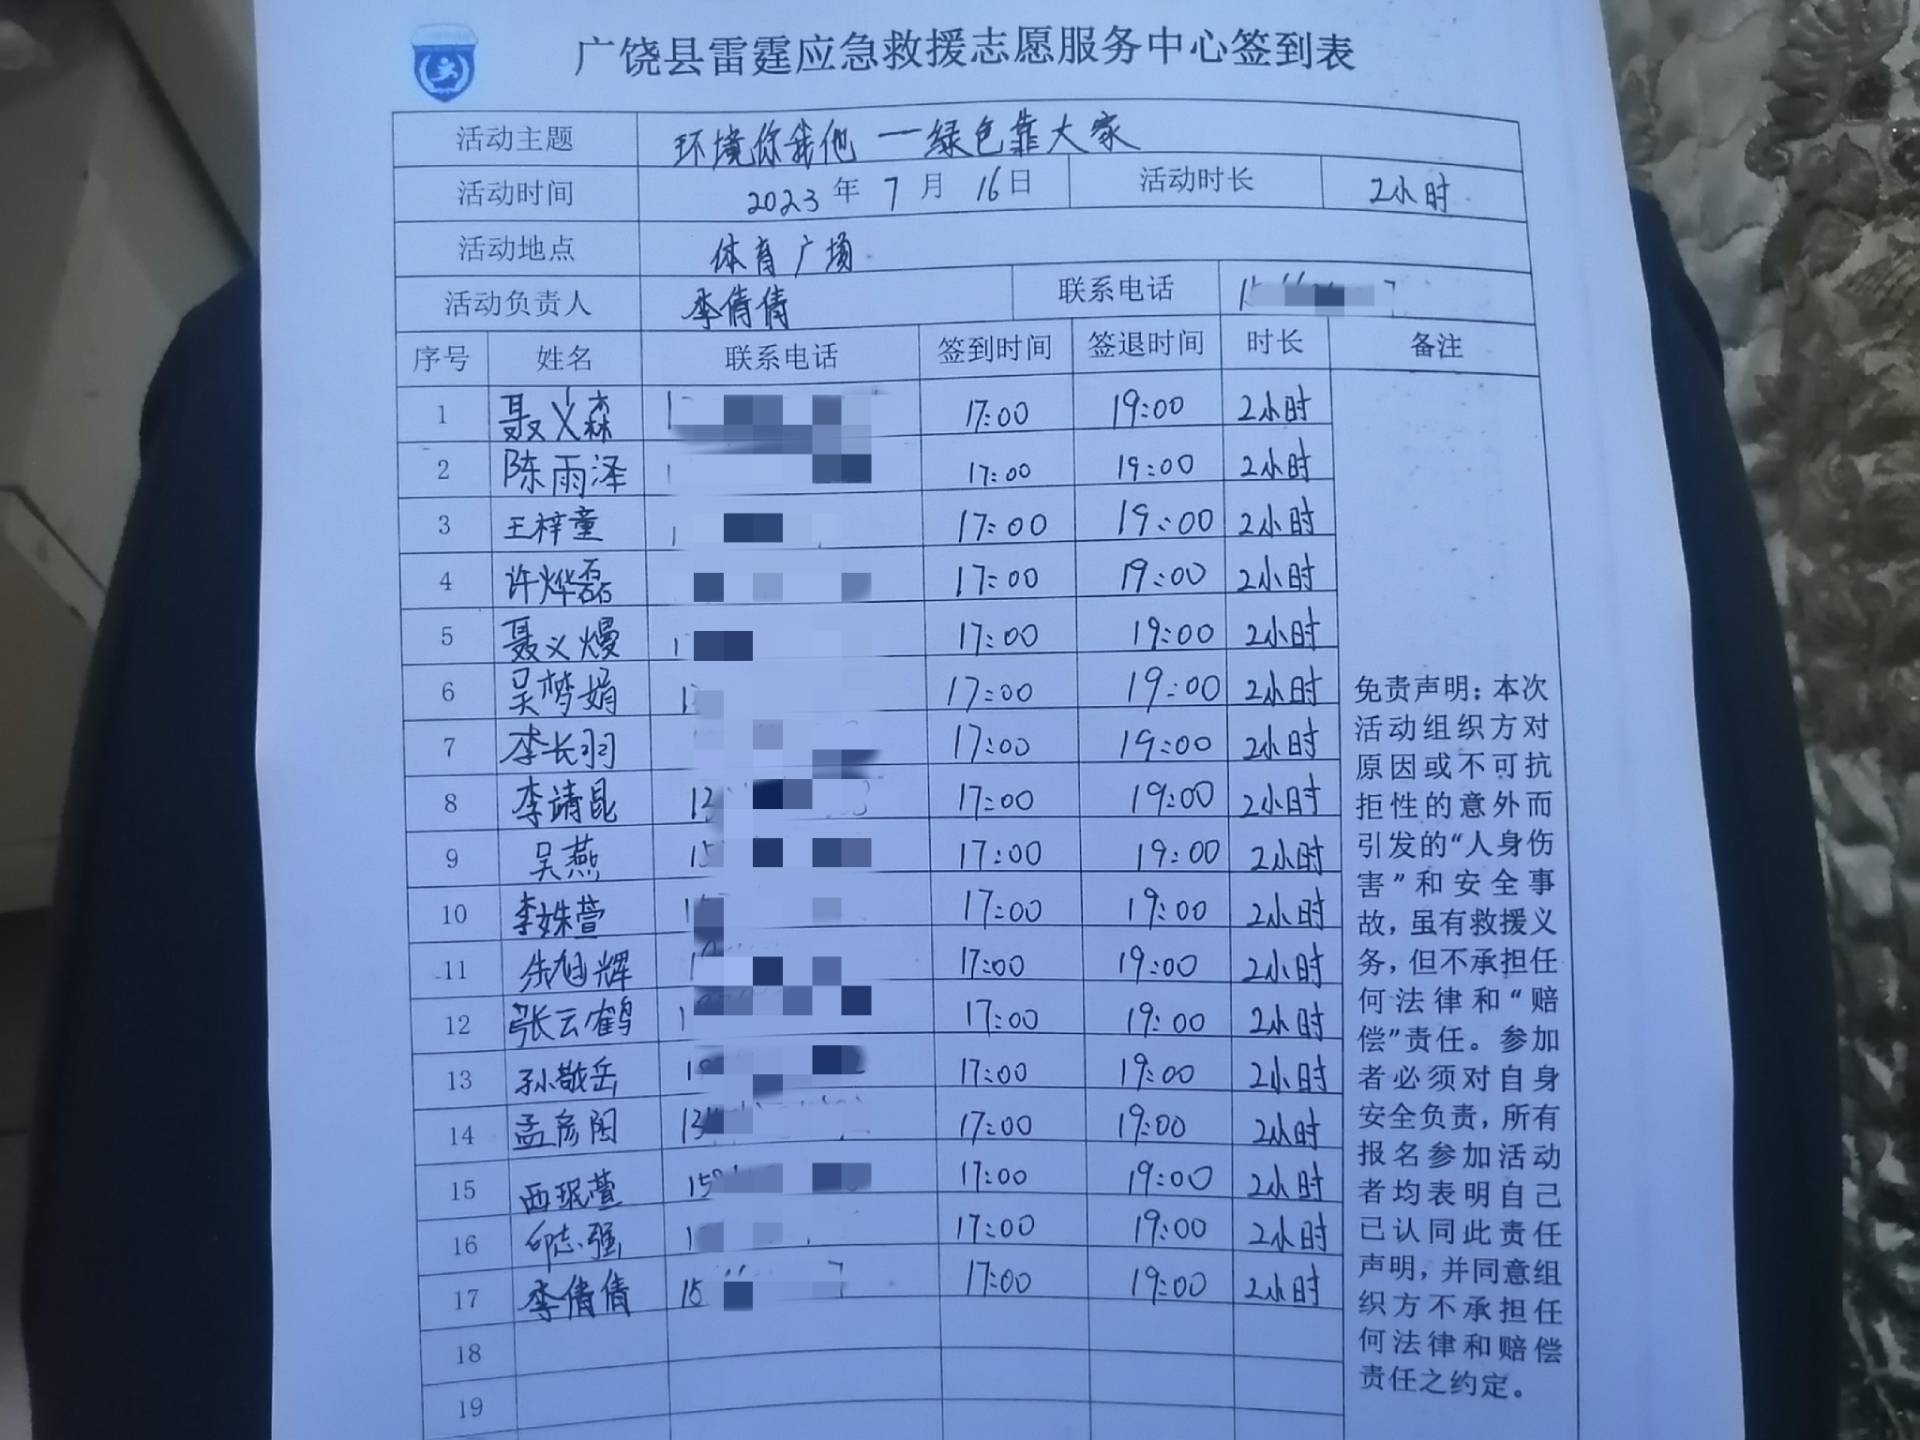 广饶县雷霆应急救援志愿服务中心签到表
活动主题 环境你我他一绿色靠大家
活动时间 2023年 7月 16日 活动时长 2小时
活动地点 体育广场
活动负责人 李倩倩 联系电话
序号 姓名 联系电话 签到时间 签退时间 时长 备注
1 聂义森 17:00 19:00 2小时
2 陈雨泽 17:00 19:00 2小时
3 王梓童 17:00 19:00 2小时
4 许烨磊 17:00 19:00 2小时
5 聂义熳 17:00 19:00 2小时
6 吴梦娟 17:00 19:00 2小时
7 李长羽 17:00 19:00 2小时
8 李靖昆 17:00 19:00 2小时
9 吴燕 17:00 19:00 2小时
10 李姝萱 17:00 19:00 2小时
11 朱旭辉 17:00 19:00 2小时
12 张云鹤 17:00 19:00 2小时
13 孙敬岳 17:00 19:00 2小时
14 孟彦陶 17:00 19:00 2小时
15 西珉萱 17:00 19:00 2小时
16 邱志强 17:00 19:00 2小时
17 李倩倩 17:00 19:00 2小时
18
19
免责声明：本次
活动组织方对
原因或不可抗
拒性的意外而
引发的“人身伤
害”和安全事
故，虽有救援义
务，但不承担任
何法律和“赔
偿”责任。参加
者必须对自身
安全负责，所有
报名参加活动
者均表明自己
已认同此责任
声明，并同意组
织方不承担任
何法律和赔偿
责任之约定。